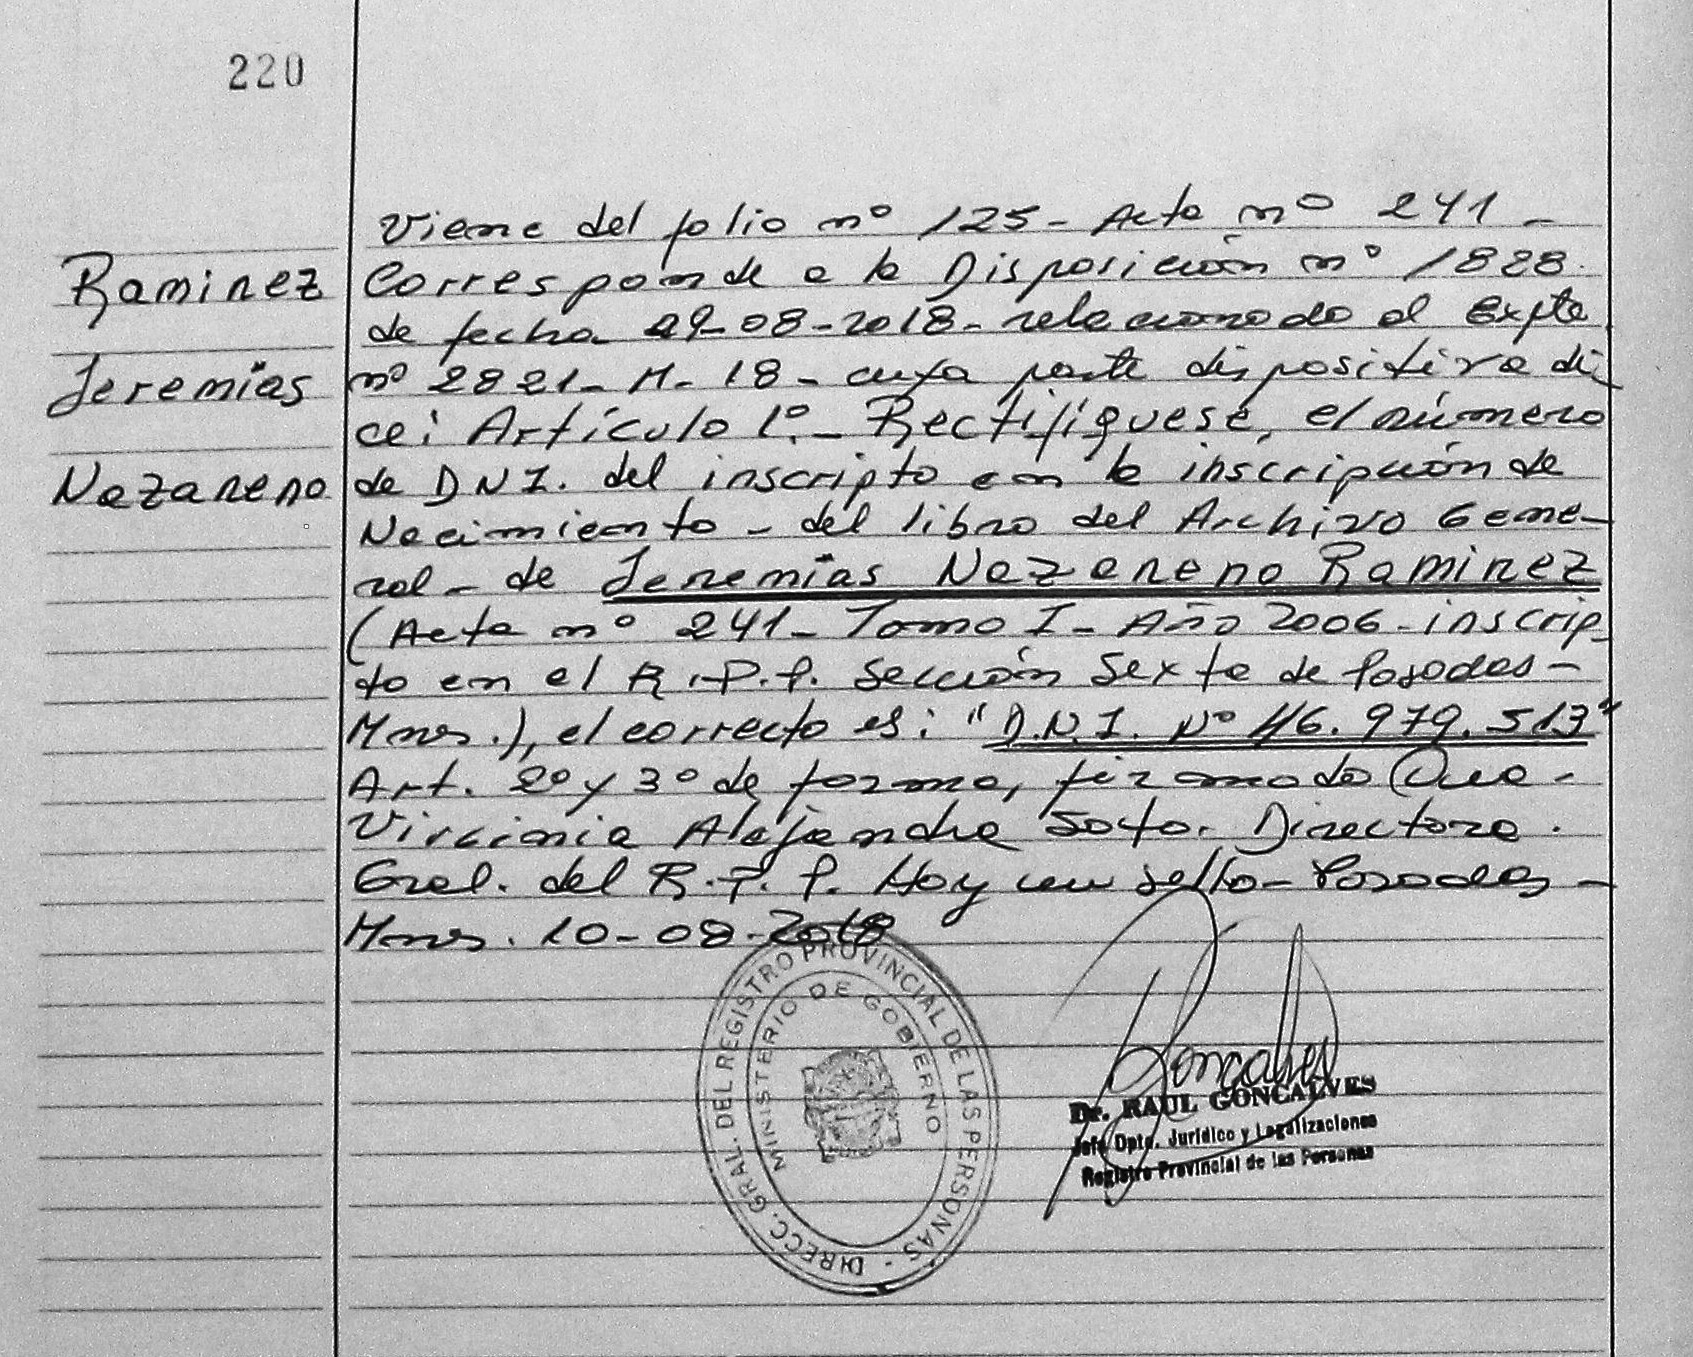 220
Viene del folio nº 125- Acta nº 241-
Ramirez
Corresponde a la Disposición nº 1828.
de fecha 09-08-2018- relacionado al Expte.
Jeremías
nº 2821- M- 18- cuya parte dispositiva di-
ce: Artículo 1º.- Rectifíquese, el número
Nazareno
de DNI. del inscripto en la inscripción de
Nacimiento - del libro del Archivo Gene-
ral - de Jeremías Nazareno Ramirez
(Acta nº 241- Tomo I- Año 2006- inscrip-
to en el R.P.P. Sección Sexta de Posadas-
Mnes.), el correcto es: "D.N.I. Nº 46.979.513"
Art. 2º y 3º de forma, firmado
Virginia Alejandra Soto. Directora.
Gral. del R.P.P. Hay un sello- Posadas-
Mnes. 10-08-2018
DIRECC. GRAL. DEL REGISTRO PROVINCIAL DE LAS PERSONAS -
MINISTERIO DE GOBIERNO
Goncalves
Dr. RAUL GONCALVES
Jefe Dpto. Jurídico y Legalizaciones
Registro Provincial de las Personas